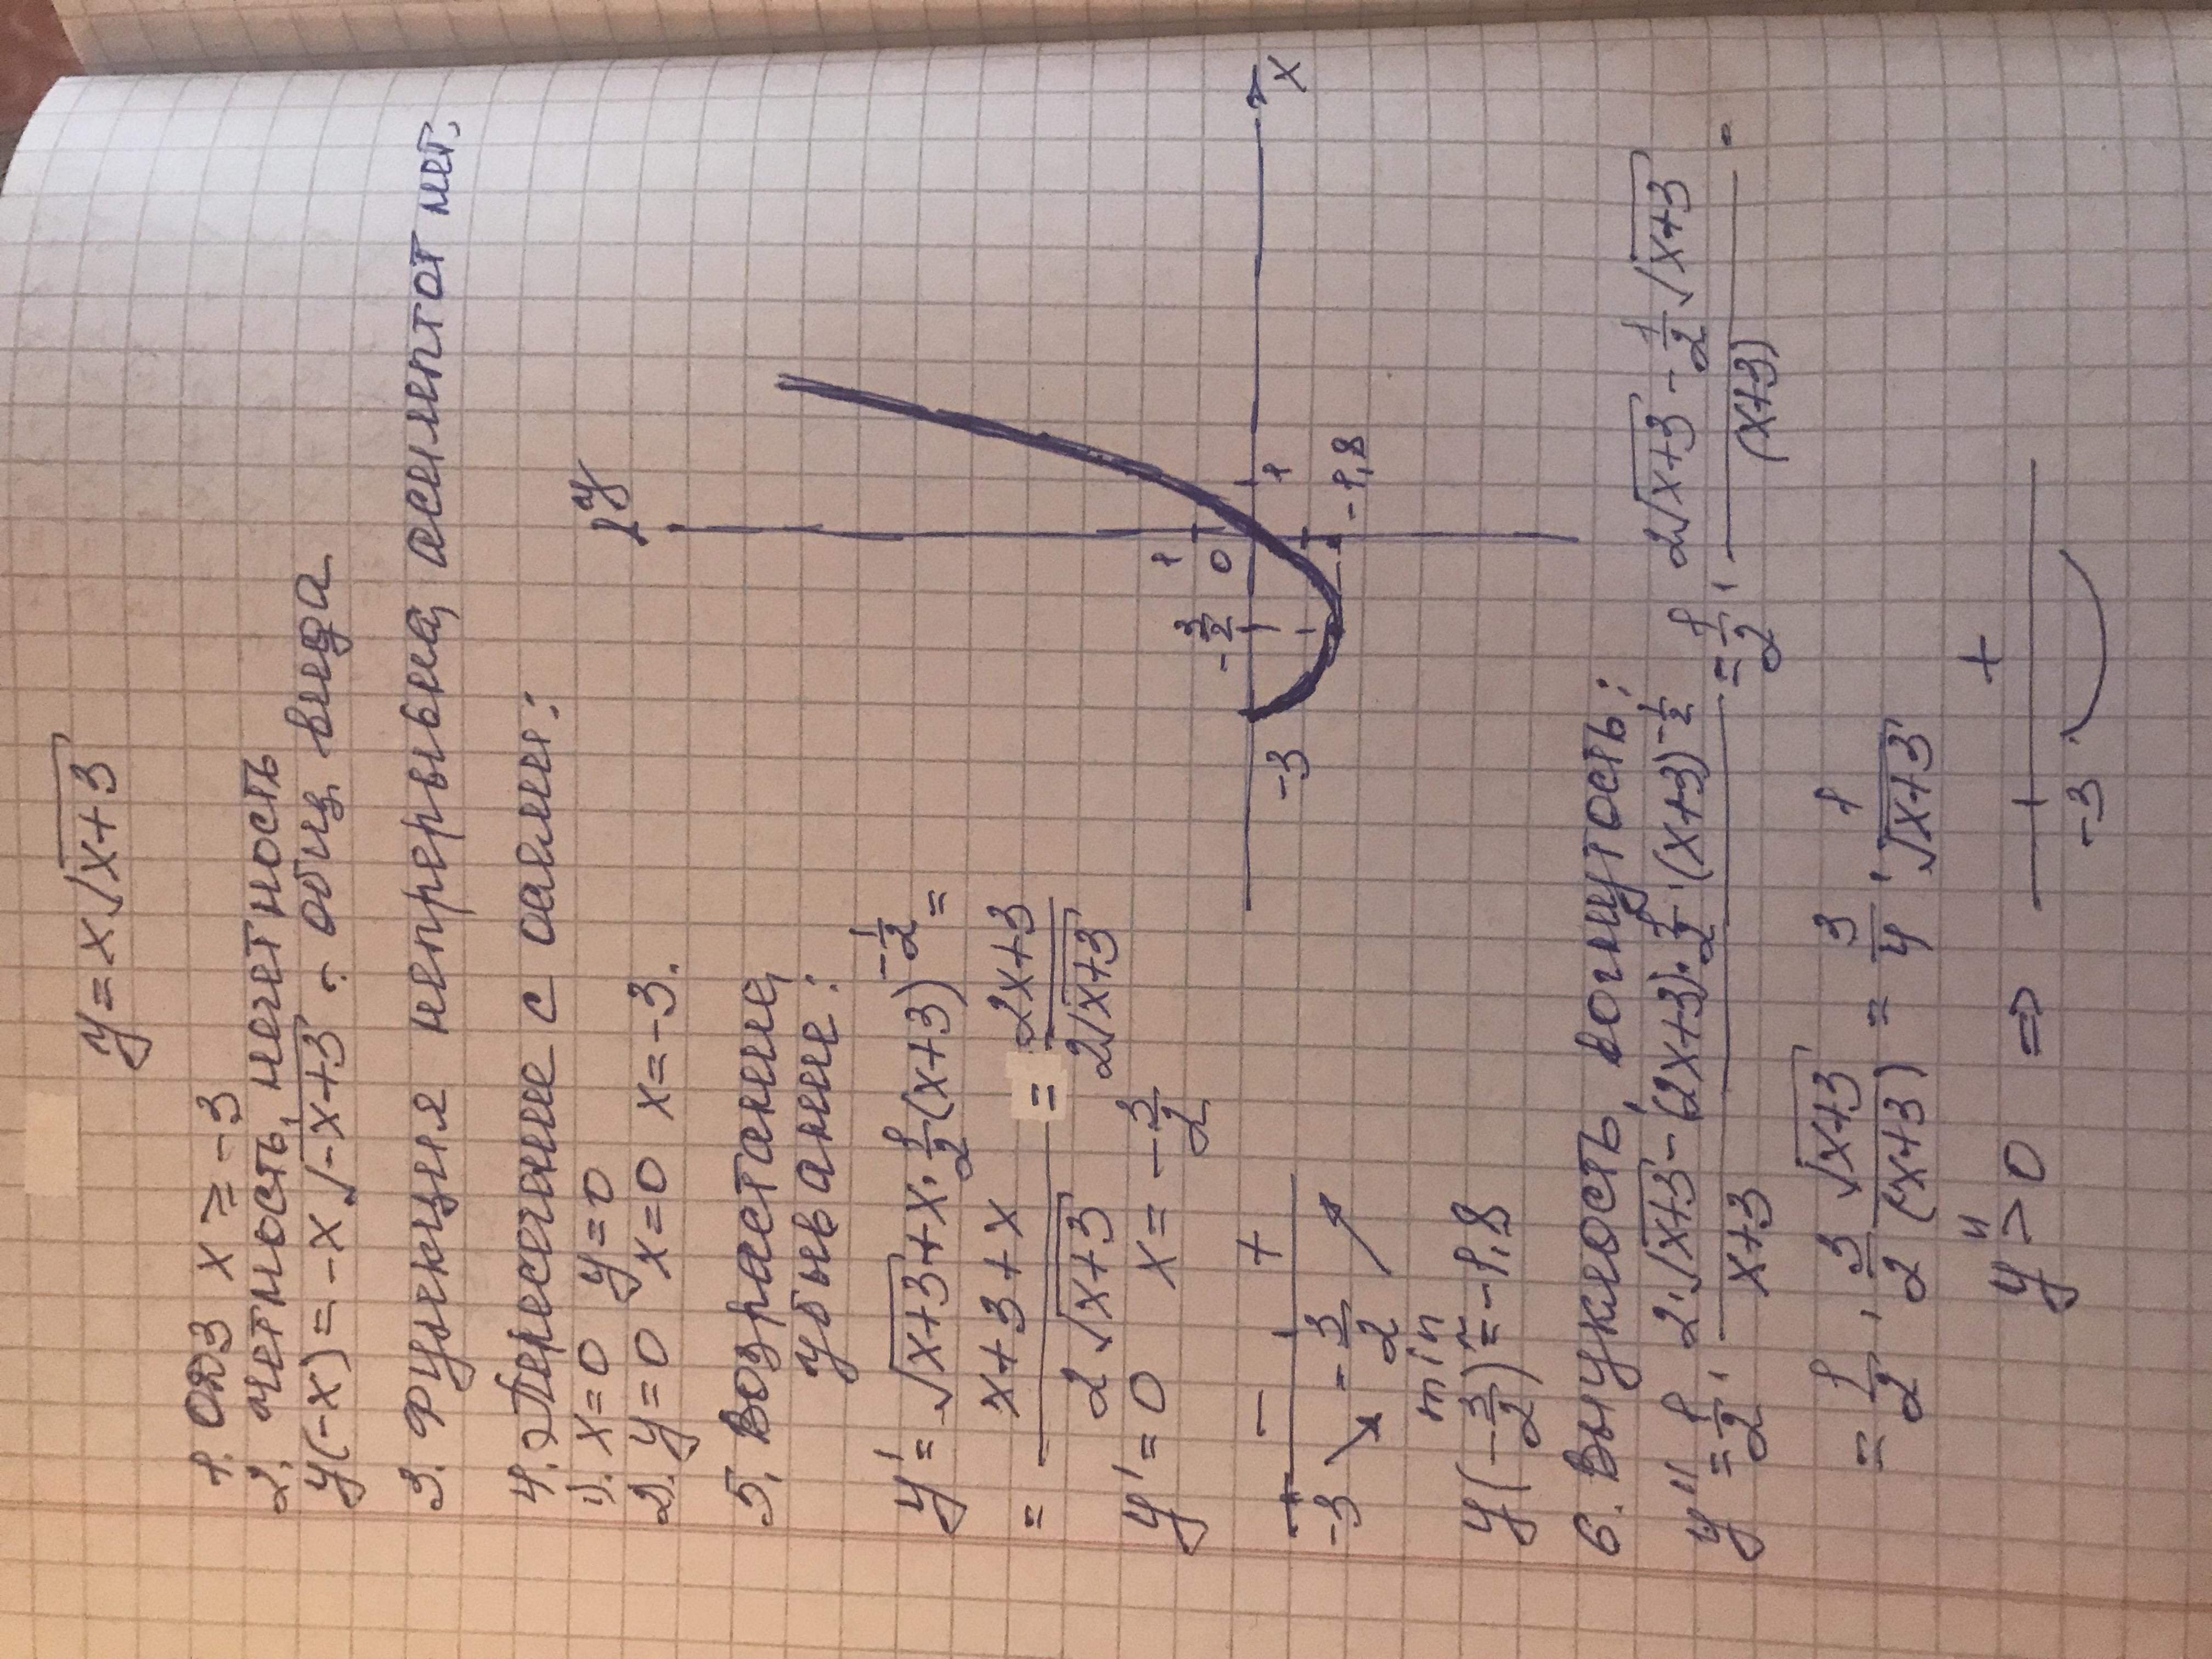 y = x√(x+3)
1. ОДЗ x ≥ -3
2. четность, нечетность
y(-x) = -x√(-x+3) ÷ общ. вида
3. Функция непрерывна, асимптот нет.
4. Пересечение с осями:
1). x=0 y=0
2). y=0 x=0 x=-3.
5. Возрастание,
убывание:
y' = √(x+3) + x·1/2(x+3)^(-1/2) =
= (x+3+x)/(2√(x+3)) = (2x+3)/(2√(x+3))
y' = 0 x = -3/2
- +
-3 -3/2
min
y(-3/2) ≈ -1,8
y
x
1
0
-3/2
1
-3
-1,8
6. Выпуклость, вогнутость:
y'' = 1/2 · (2·√(x+3) - (2x+3)·1/2·(x+3)^(-1/2))/(x+3) = 1/2 · (2√(x+3) - 1/2√(x+3))/(x+3) =
= 1/2 · 3/2 √(x+3)/(x+3) = 3/4 · 1/√(x+3)
y'' > 0 ⇒
+
-3